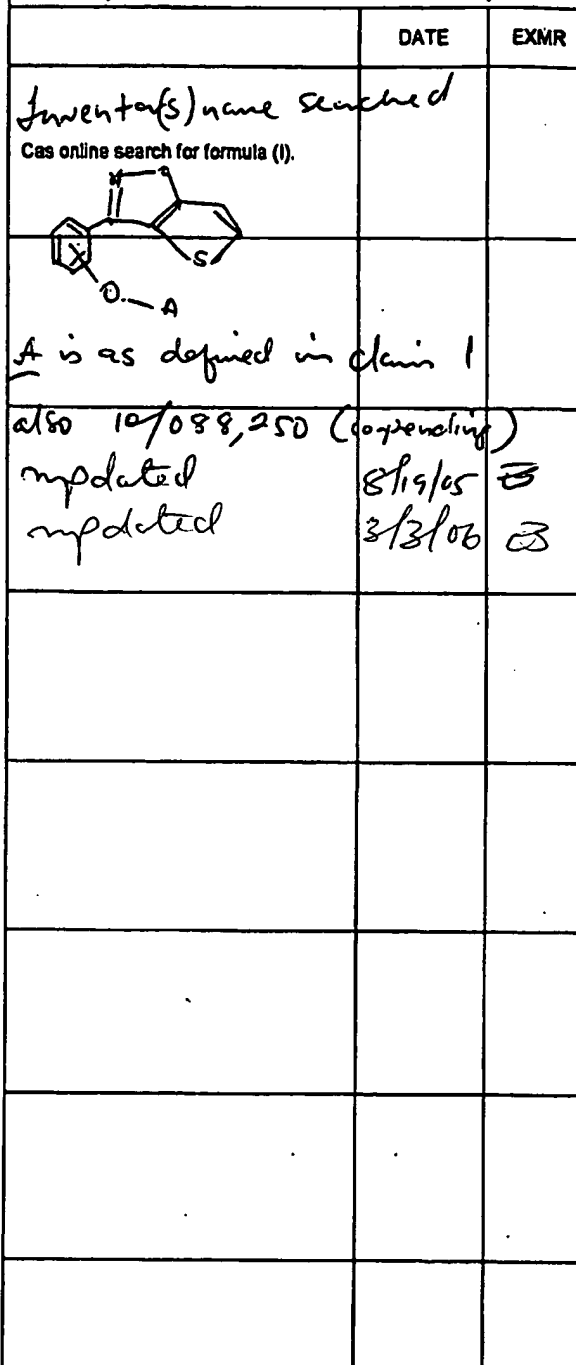 DATE EXMR
Inventor(s) name searched
Cas online search for formula (I).
N O
S
O A
A is as defined in claim 1
also 10/088,250 (copending)
updated 8/19/05
updated 3/3/06